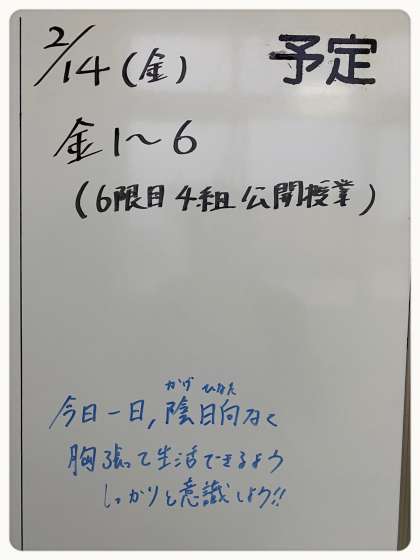 2/14(金) 予定
金1〜6
(6限目4組公開授業)
かげ ひなた
今日一日,陰日向なく
胸張って生活できるよう
しっかりと意識しよう!!